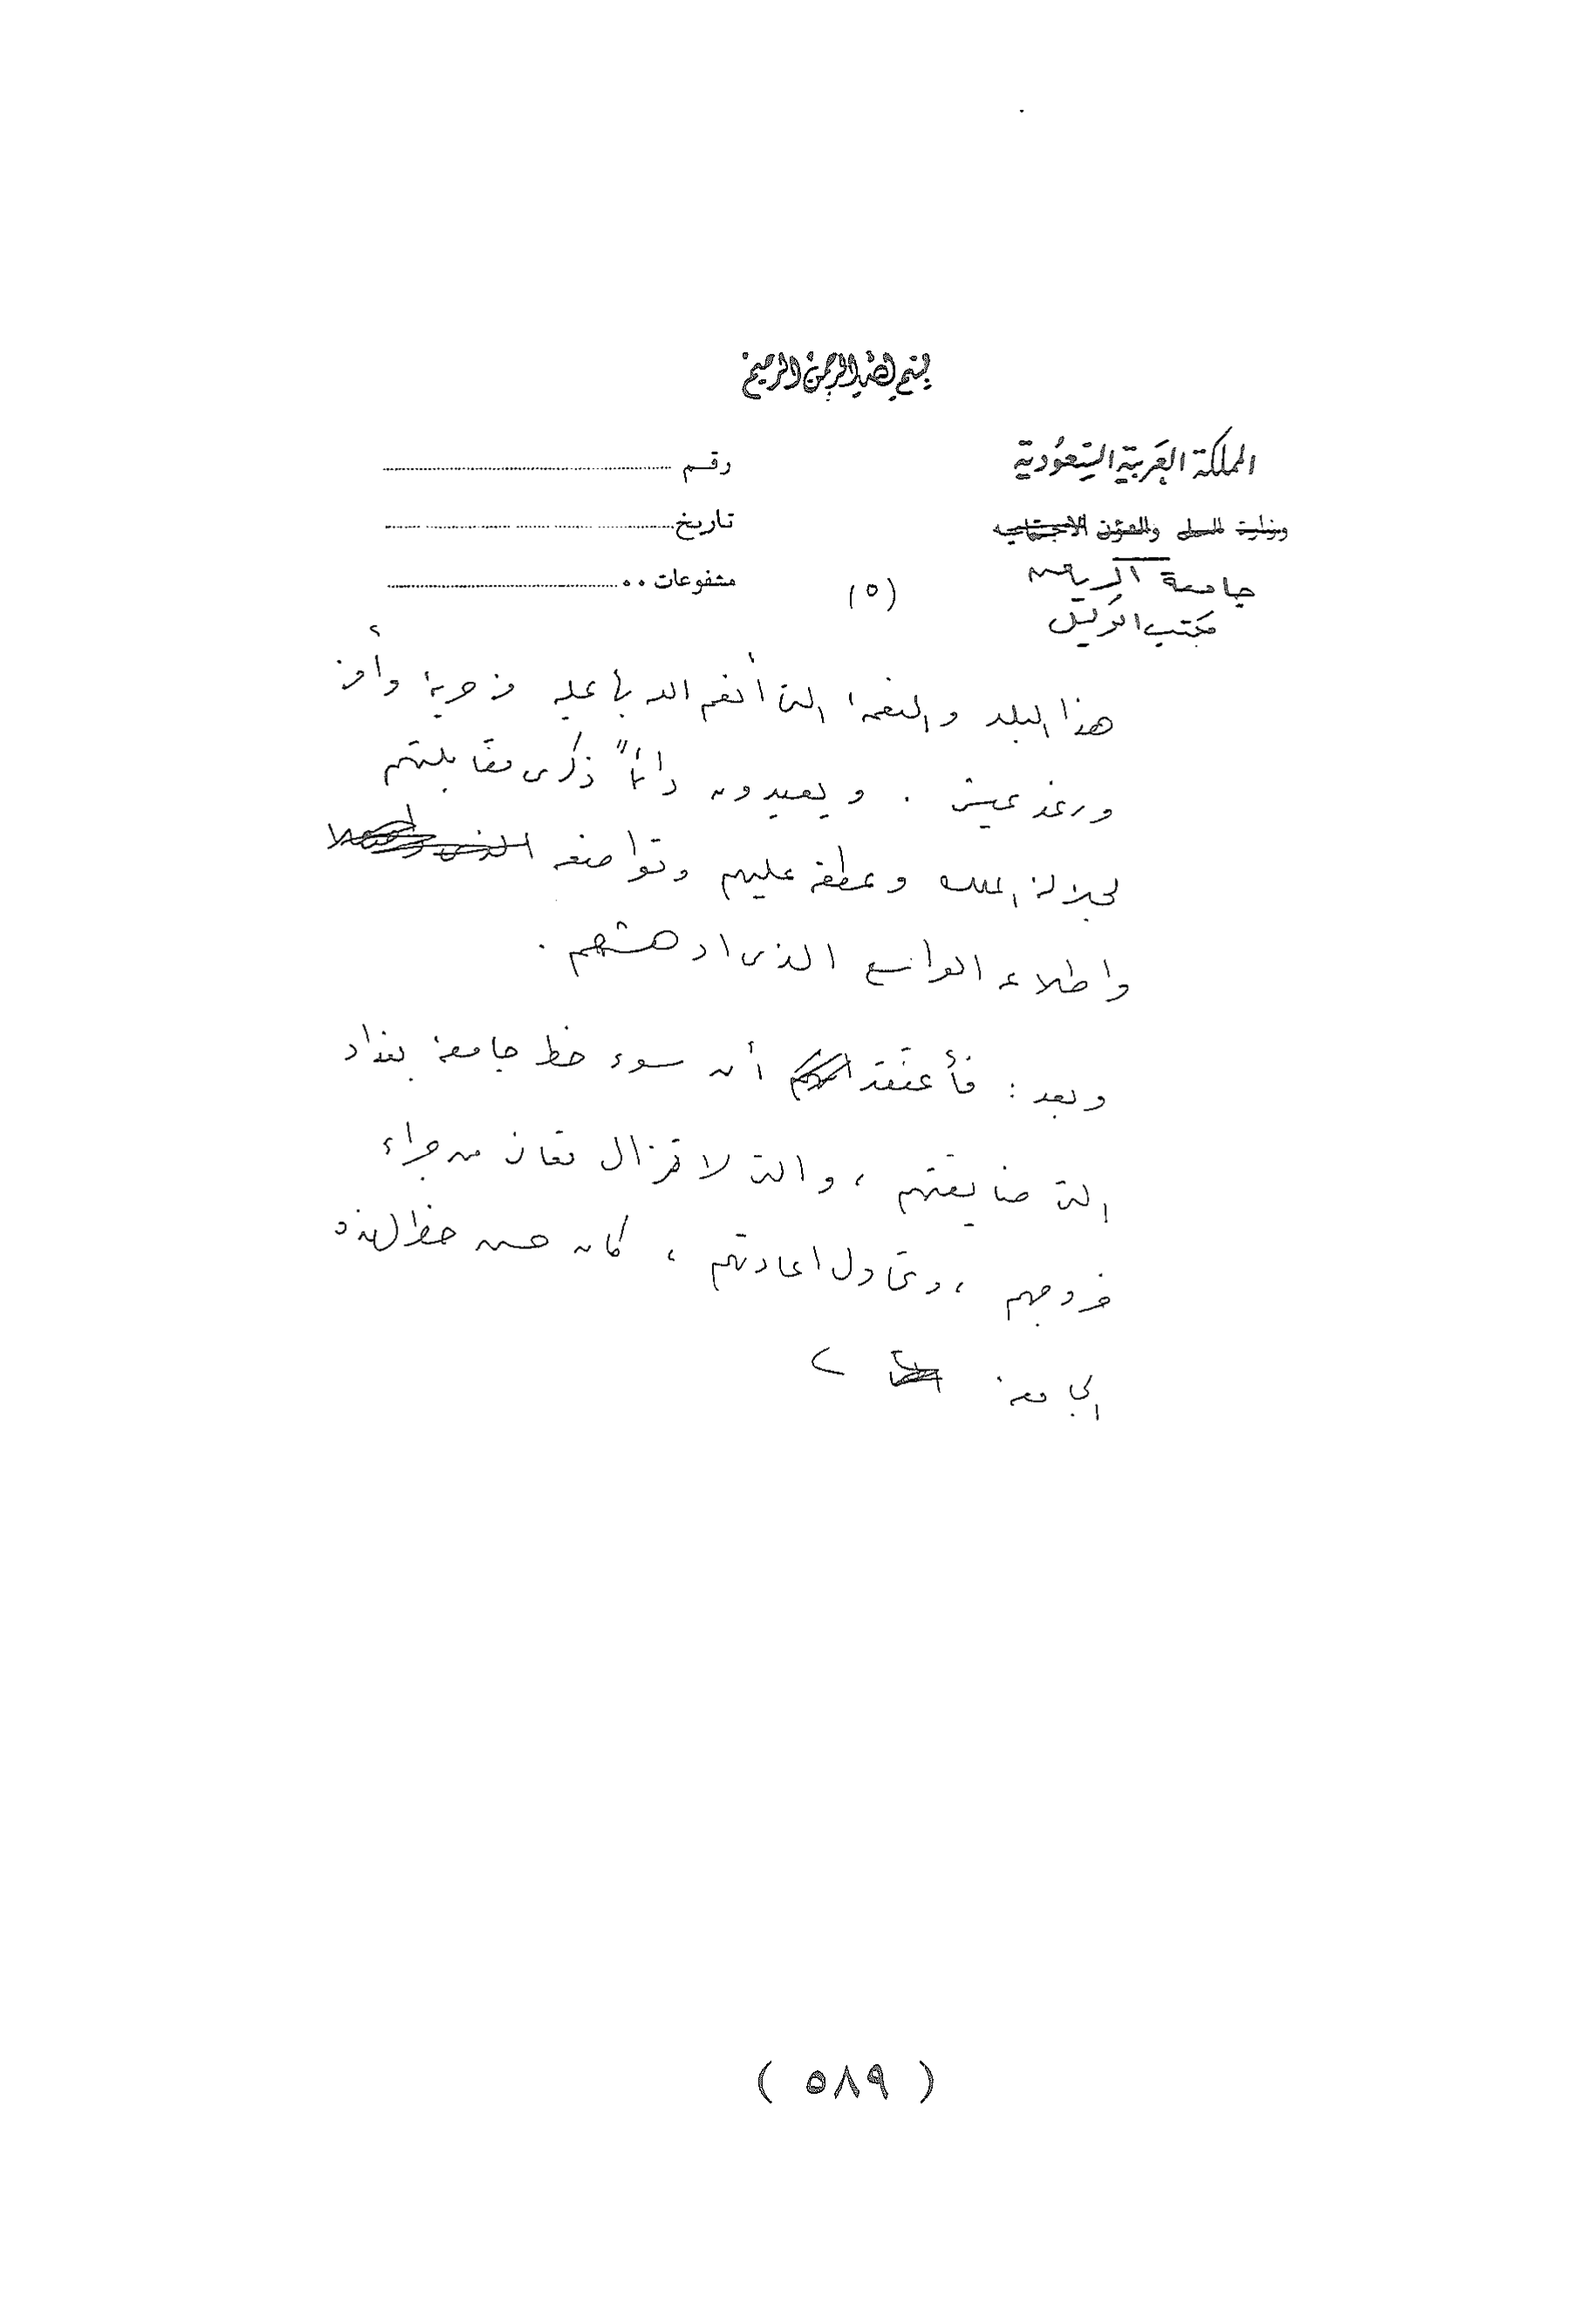 بسم الله الرحمن الرحيم
المملكة العربية السعودية
وزارة العمل والشئون الاجتماعية
جامعة الرياض
مكتب الوكيل
رقم
تاريخ
مشفوعات
(٥)
هذا البلد والنعمة التي أنعم الله بها عليه من حرية وأمن
ورغد عيش . ويعيدون دائماً ذكرى مقابلتهم
لجلالة الملك وعطفه عليهم وتواضعه
واطلاعه الواسع الذي ادهشهم .
وبعد : فأعتقد أن سوء حظ جامعة بغداد
التي ضايقتهم ، والتي لا تزال تعاني من جراء
خروجهم ، وتحاول اعادتهم ، كان حسن حظ لهذه
الجامعة
( ٥٨٩ )